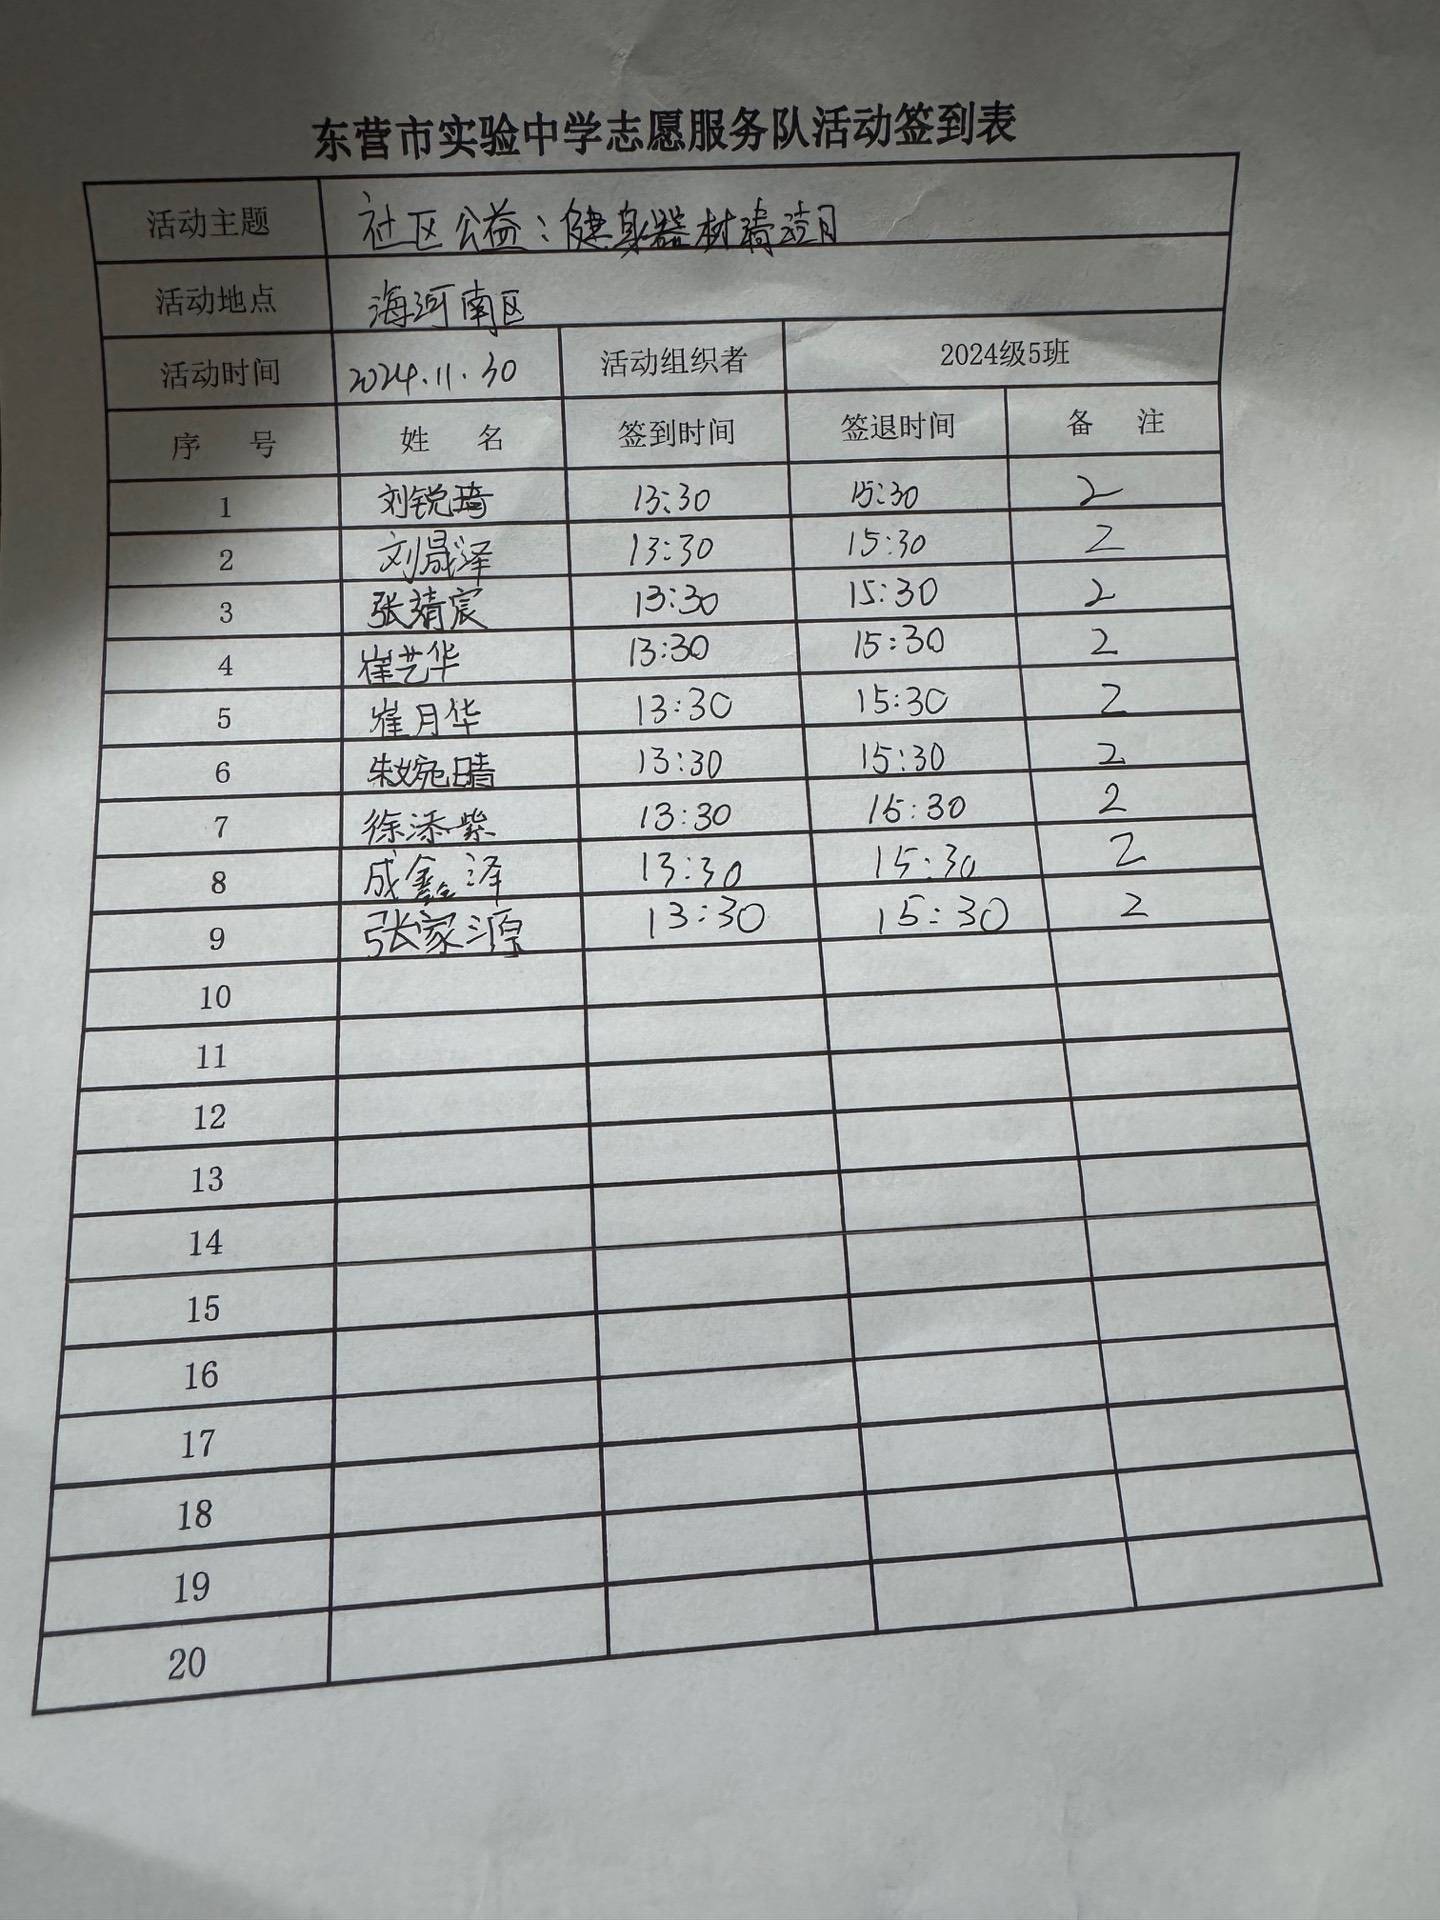 东营市实验中学志愿服务队活动签到表
活动主题 社区公益：健身器材清洁月
活动地点 海河南区
活动时间 2024.11.30 活动组织者 2024级5班
序 号 姓 名 签到时间 签退时间 备 注
1 刘锐琦 13:30 15:30 2
2 刘晟泽 13:30 15:30 2
3 张靖宸 13:30 15:30 2
4 崔艺华 13:30 15:30 2
5 崔月华 13:30 15:30 2
6 朱婉晴 13:30 15:30 2
7 徐添紫 13:30 15:30 2
8 成鑫泽 13:30 15:30 2
9 张家源 13:30 15:30 2
10
11
12
13
14
15
16
17
18
19
20